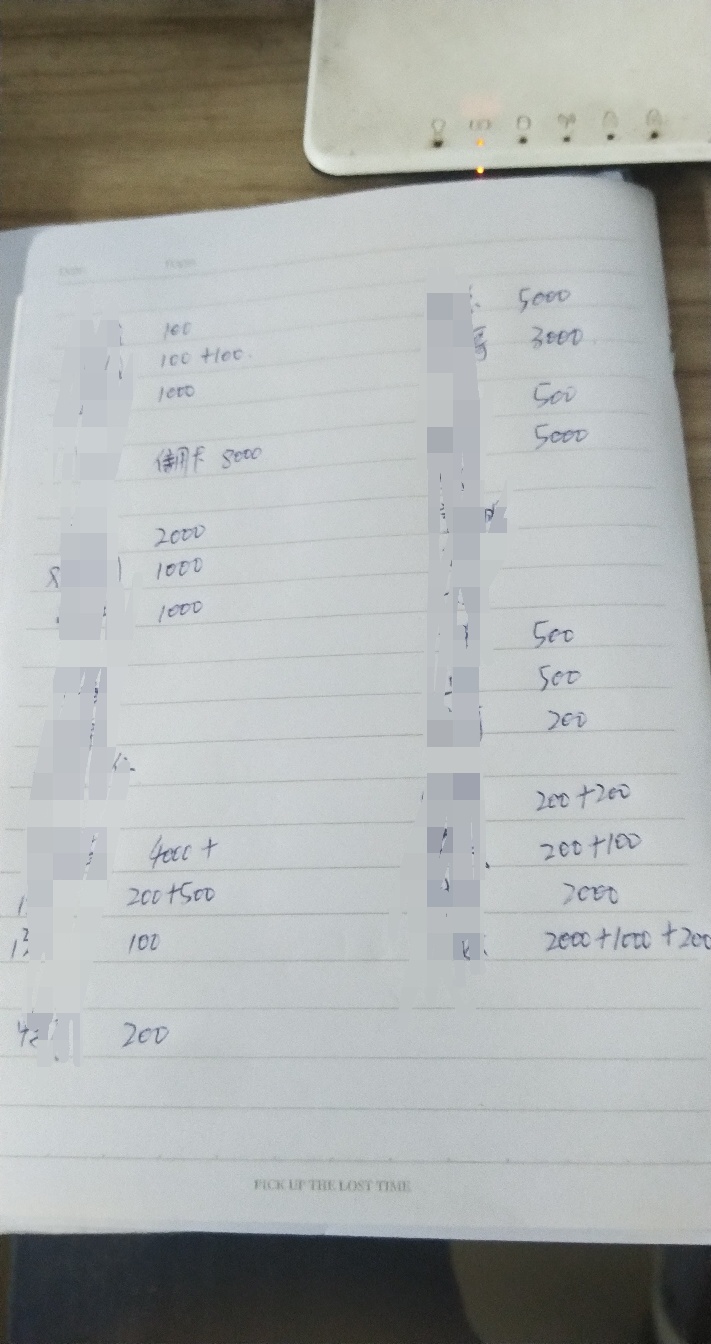 100
100 +100
1000
信用卡 8000
2000
1000
1000
4000 +
200+500
100
200
5000
3000
500
5000
500
500
200
200+200
200+100
2000+1000+200
PICK UP THE LOST TIME